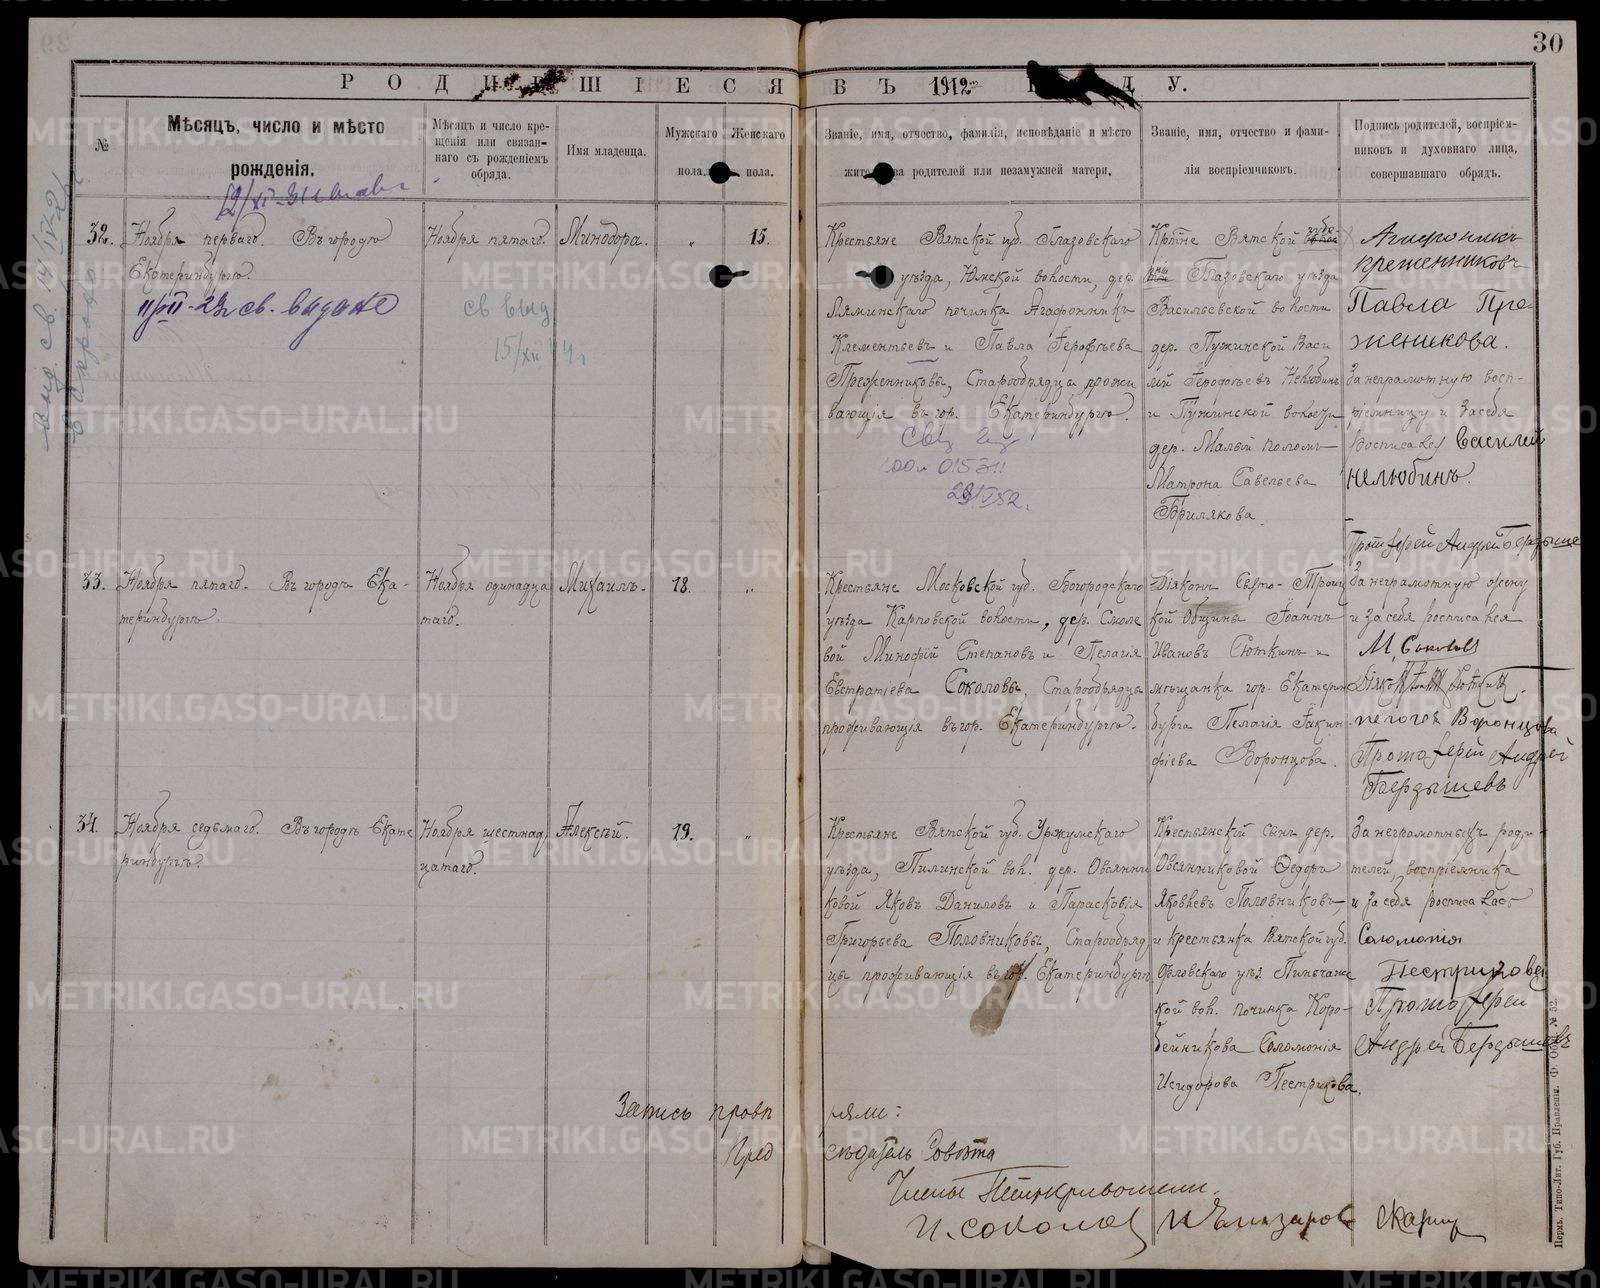 30
РОДИВШІЕСЯ ВЪ 1912 ГОДУ.
№
Мѣсяцъ, число и мѣсто
рожденія.
Мѣсяцъ и число кре-
щенія или связан-
наго съ рожденіемъ
обряда.
Имя младенца.
Мужскаго
пола.
Женскаго
пола.
Званіе, имя, отчество, фамилія, исповѣданіе и мѣсто
жительства родителей или незамужней матери.
Званіе, имя, отчество и фами-
лія воспріемчиковъ.
Подпись родителей, воспріем-
никовъ и духовнаго лица,
совершавшаго обрядъ.
32.
Ноября перваго. Въ городѣ
Екатеринбургѣ.
св. выдано
Ноября пятаго.
св выд
15/XII 44 г
Минодора.
"
15.
Крестьяне Вятской губ. Глазовскаго
уѣзда, Юмской волости, дер.
Ляминскаго починка Агафонникъ
Клементьевъ и Павла Ерофѣева
Преженниковы, Старообрядцы прожи
вающія въ гор. Екатеринбургѣ.
015311
Крт̃не Вятской губе
рніи Глазовскаго уѣзда
Васильевской волости
дер. Пужинской Васи
лій Феродотьевъ Нелюбинъ
и Пужинской волости
дер. Малый поломъ
Матрона Савельева
Брилякова.
Агафоникъ
преженниковъ
Павла Пре-
женикова.
За неграмотную восп-
ріемницу и за себя
росписался Василей
нелюбинъ.
Протоіерей Андрей Бердыше
33.
Ноября пятаго. Въ городѣ Ека-
теринбургѣ.
Ноября одинадца
таго.
Михаилъ.
18.
"
Крестьяне Московской губ. Богородскаго
уѣзда Карповской волости, дер. Смоле
вой Минофій Степановъ и Пелагія
Евстратіева Соколовы, Старообрядцы
проживающія въ гор. Екатеринбургѣ.
Діяконъ Свято-Троиц
кой Общины Іоаннъ
Ивановъ Сюткинъ и
мѣщанка гор. Екатерин
бурга Пелагія Іакин-
фіева Воронцова.
За неграмотную жену
и за себя росписался
М. Соколовъ
пелогея Воронцова
Протоіерей Андрей
Бердышевъ
34.
Ноября седьмаго. Въ городѣ Екате
ринбургѣ.
Ноября шестнад
цатаго.
Алексѣй.
19.
"
Крестьяне Вятской губ. Уржумскаго
уѣзда, Пилинской вол. дер. Овсянни
ковой Яковъ Даниловъ и Парасковія
Григорьева Половниковы, Старообряд
цы проживающія въ гор. Екатеринбургѣ
Крестьянскій сынъ дер.
Овсянниковой Ѳедоръ
Яковлевъ Половниковъ,
и крестьянка Вятской губ.
Орловскаго уѣз. Пинчанс
кой вол. починка Коро-
бейникова Соломонія
Исидорова Пестрикова.
За неграмотныхъ роди-
телей, воспріемника
и за себя росписалась
Соломонія
Пестрикова
Протоіерей
Андрей Бердышевъ
Запись провѣряли:
Предсѣдатель Совѣта
Члены
И. Соколов
Пермь. Типо-Лит. Губ. Правленія.
METRIKI.GASO-URAL.RU